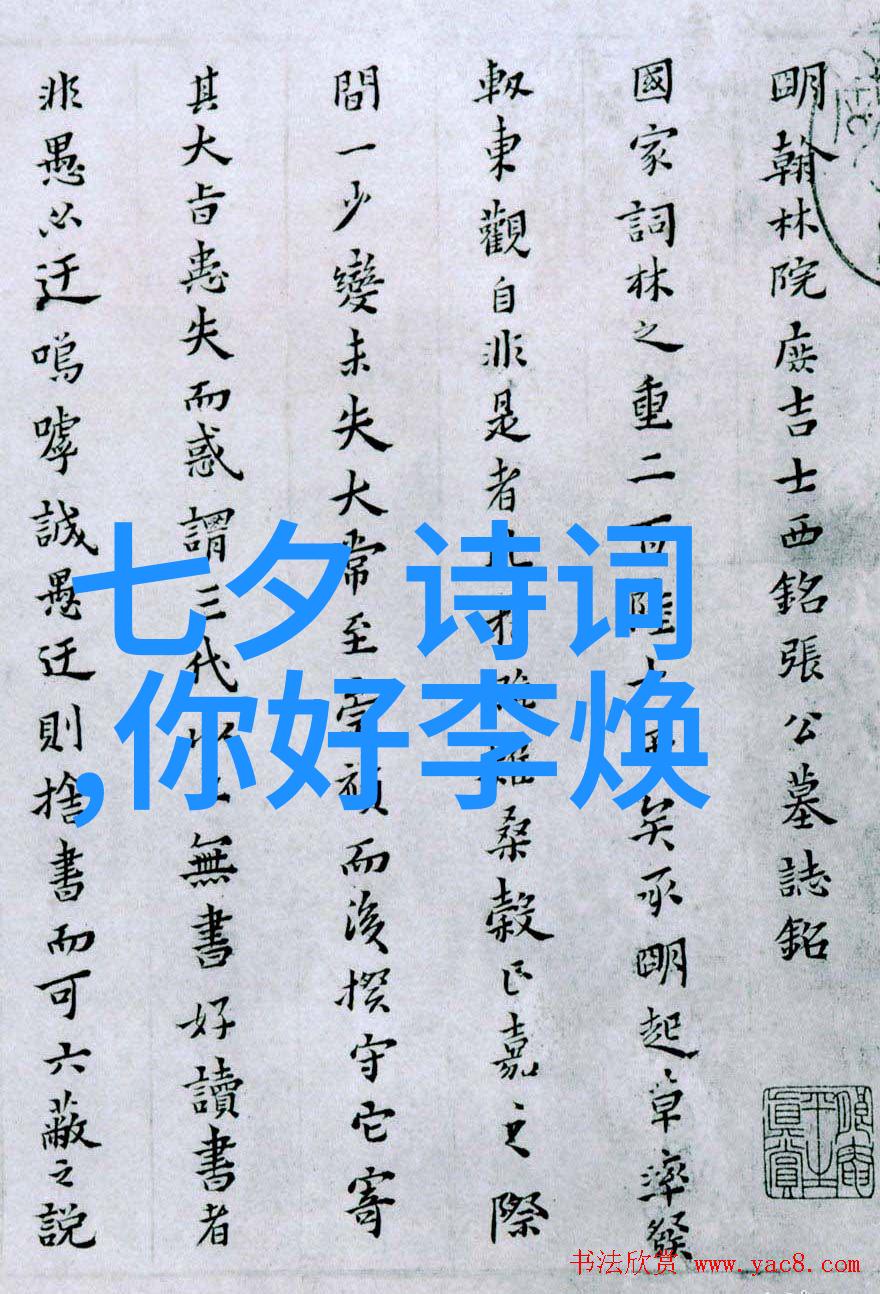 明翰林院庶吉士西銘張公墓誌銘
國家詞林之重二百陸十年矣承明起草率發
軔東觀自非是者
桑榖正嘉之際
間一少變未失大常至
而後揆守它寄
其大旨惑失而惑謂三代
無書好讀書者
非愚必迂嗚嘑誠愚迂則捨書而可六蔽之說
七夕 诗词
,你好李焕
书法欣赏 www.yac8.com